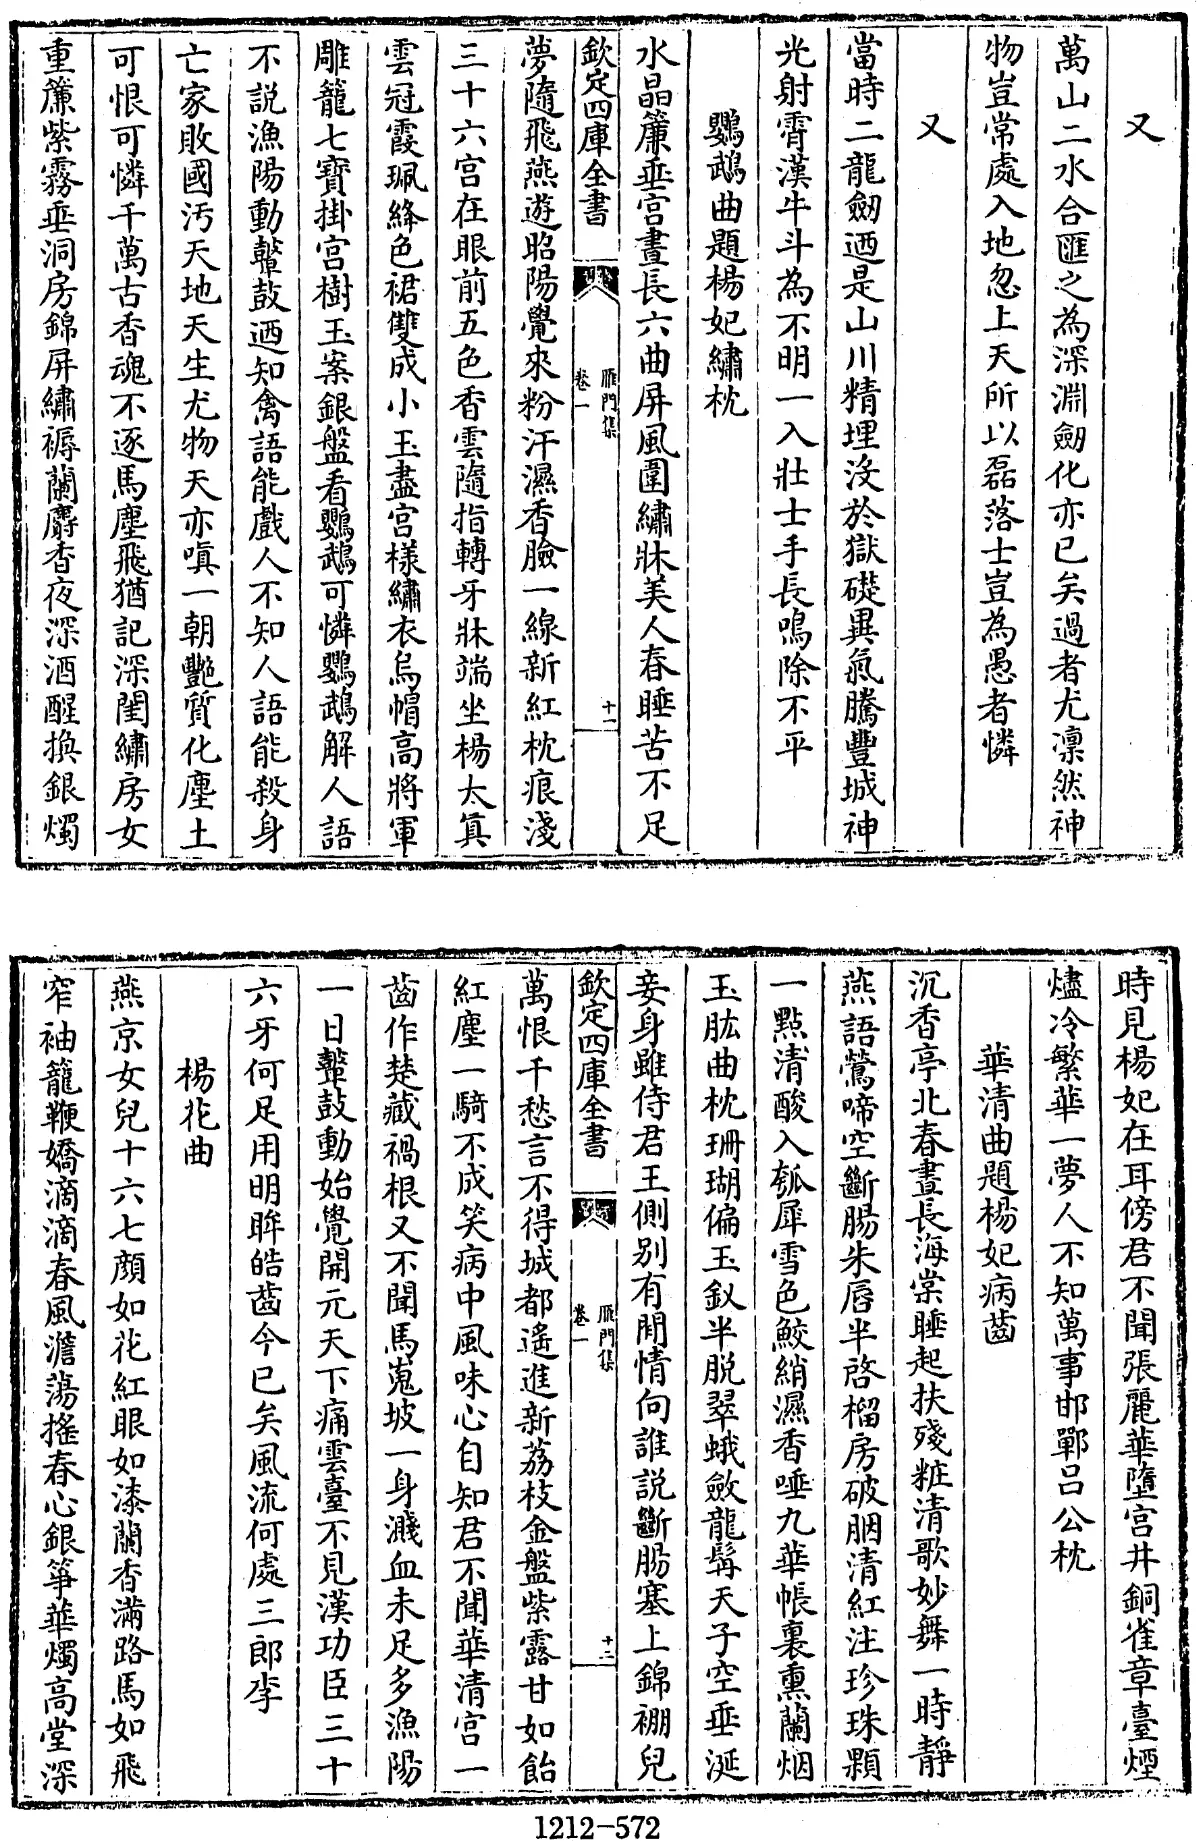 又
萬山二水合匯之為深淵劒化亦已矣過者尤凜然神
物豈常處入地忽上天所以磊落士豈為愚者憐
又
當時二龍劒迺是山川精埋沒於獄礎異氣騰豐城神
光射霄漢牛斗為不明一入壯士手長鳴除不平
鸚鵡曲題楊妃繡枕
水晶簾垂宮晝長六曲屏風圍繡牀美人春睡苦不足
欽定四庫全書
雁門集
卷一
十一
夢隨飛燕遊昭陽覺來粉汗濕香臉一線新紅枕痕淺
三十六宮在眼前五色香雲隨指轉牙牀端坐楊太真
雲冠霞珮絳色裙雙成小玉盡宮樣繡衣烏帽高將軍
雕籠七寶掛宮樹玉案銀盤看鸚鵡可憐鸚鵡解人語
不説漁陽動鼙鼓迺知禽語能戲人不知人語能殺身
亡家敗國汚天地天生尤物天亦嗔一朝艷質化塵土
可恨可憐千萬古香魂不逐馬塵飛猶記深閨繡房女
重簾紫霧垂洞房錦屏繡褥蘭麝香夜深酒醒換銀燭
時見楊妃在耳傍君不聞張麗華墮宮井銅雀章臺煙
燼冷繁華一夢人不知萬事邯鄲呂公枕
華清曲題楊妃病齒
沉香亭北春晝長海棠睡起扶殘粧清歌妙舞一時靜
燕語鶯啼空斷腸朱唇半啓榴房破胭清紅注珍珠顆
一點清酸入瓠犀雪色鮫綃濕香唾九華帳裏熏蘭烟
玉肱曲枕珊瑚偏玉釵半脱翠蛾斂龍髯天子空垂涎
妾身雖侍君王側别有閒情向誰説斷腸塞上錦裯兒
欽定四庫全書
雁門集
卷一
十二
萬恨千愁言不得城都遙進新荔枝金盤紫露甘如飴
紅塵一騎不成笑病中風味心自知君不聞華清宮一
齒作楚藏禍根又不聞馬嵬坡一身濺血未足多漁陽
一日鼙鼓動始覺開元天下痛雲臺不見漢功臣三十
六牙何足用明眸皓齒今已矣風流何處三郎李
楊花曲
燕京女兒十六七顔如花紅眼如漆蘭香滿路馬如飛
窄袖籠鞭嬌滴滴春風澹蕩搖春心銀箏華燭高堂深
1212-572